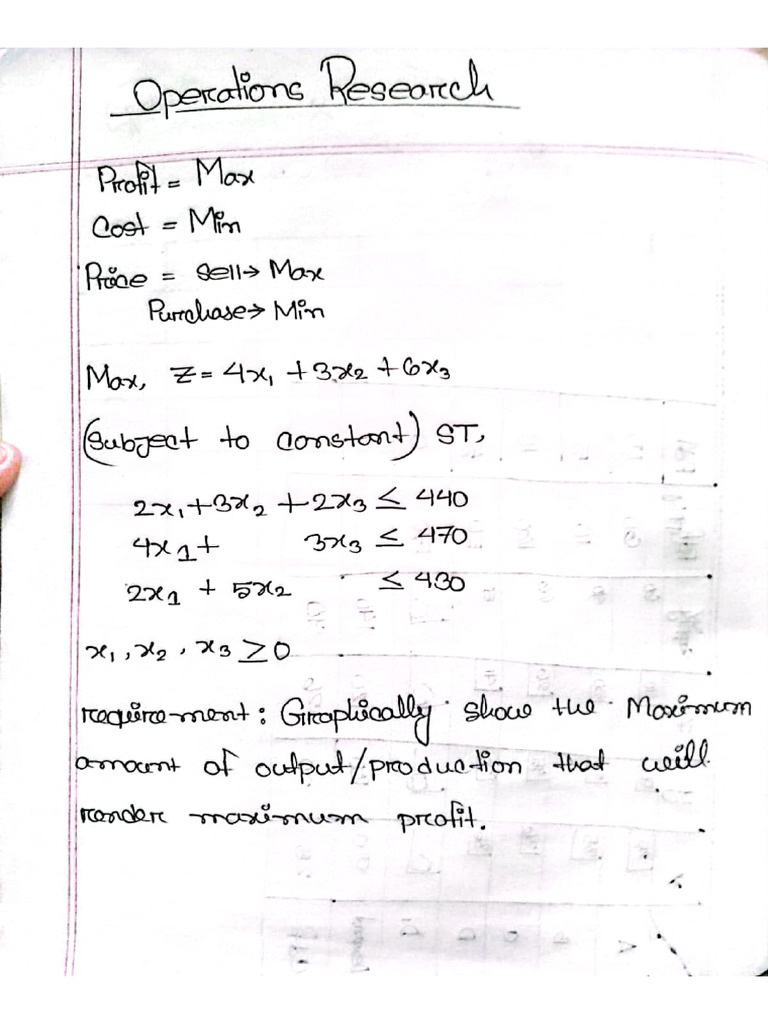 Operations Research
Profit = Max
Cost = Min
Price = Sell → Max
Purchase → Min
Max, Z = 4x₁ + 3x₂ + 6x₃
(Subject to constant) ST,
2x₁ + 3x₂ + 2x₃ ≤ 440
4x₁ + 3x₃ ≤ 470
2x₁ + 5x₂ ≤ 430
x₁, x₂, x₃ ≥ 0
requirement: Graphically show the Maximum
amount of output/production that will
render maximum profit.